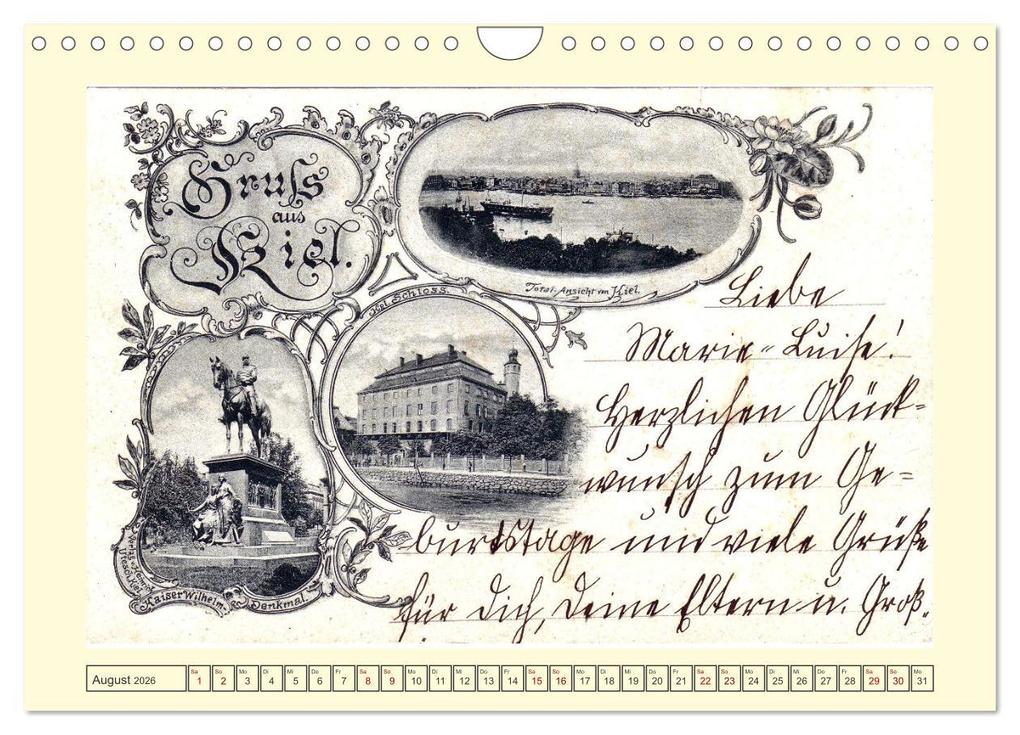 Gruss
aus
Kiel.
Total-Ansicht von Kiel.
Kgl. Schloss.
Kaiser Wilhelm-
Denkmal.
Liebe
Marie-Luise!
Herzlichen Glück=
wunsch zum Ge=
burtstage und viele Grüße
für Dich, Deine Eltern u. Groß.
August 2026
Sa So Mo Di Mi Do Fr Sa So Mo Di Mi Do Fr Sa So Mo Di Mi Do Fr Sa So Mo Di Mi Do Fr Sa So Mo
1 2 3 4 5 6 7 8 9 10 11 12 13 14 15 16 17 18 19 20 21 22 23 24 25 26 27 28 29 30 31